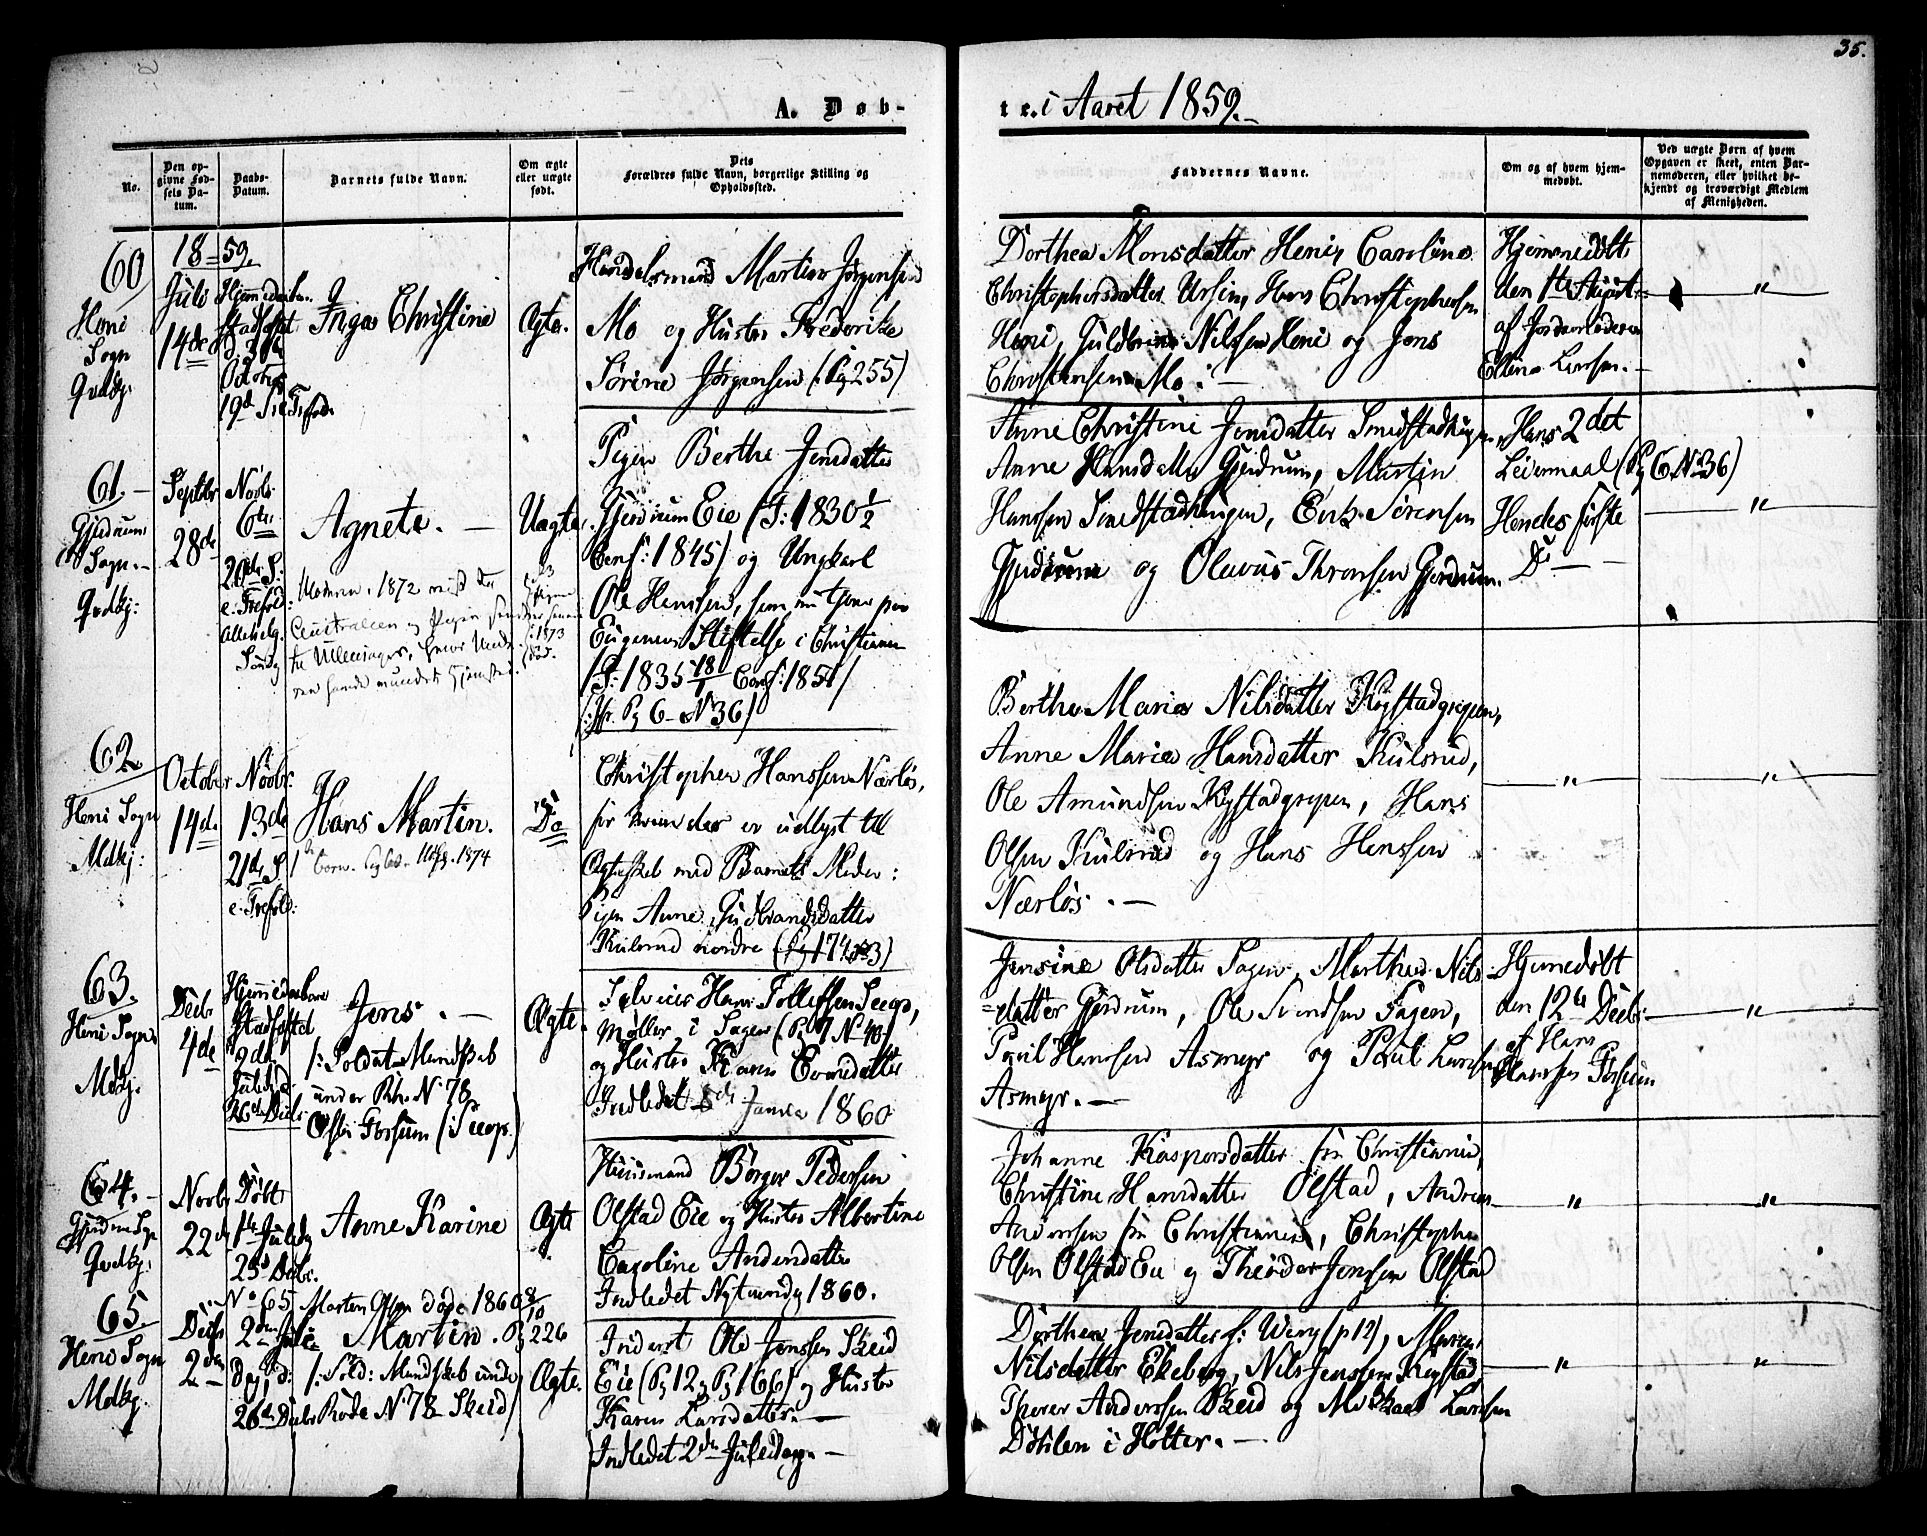 35.
A. Døb-
te. i Aaret 1859.
No.
Den op-
givne Fød-
sels Da-
tum.
Daabs-
Datum.
Barnets fulde Navn.
Om ægte
eller uægte
født.
Dets
Forældres fulde Navn, borgerlige Stilling og
Opholdssted.
Faddernes Navne.
Om og af hvem hjem-
medøbt.
Ved uægte Børn af hvem
Opgaven er skeet, enten Bar-
nemoderen, eller hvilket be-
kjendt og troværdigt Medlem
af Menigheden.
60
Heni
Sogn
Qvdkj.
18
Juli
14de
59.
Hjemmedaaben
Stadfæst
d. 3die
October
19d S. e Trefold.
Inga Christine
Ægte.
Handelsmand Martin Jørgensen
Mo og Hustro Frederikke
Sørine Jørgensen (Pg 255)
Dorthea Monsdatter Heni, Caroline
Christophersdatter Ursin, Hans Christophersen
Heni, Guldbrand Nilssen Heni og Jens
Christensen Mo.
Hjemmedøbt
den 1te August
af Jordemoderen
Ellen Larsen.
"
61.
Gjerdrums
Sogn.
Qvdkj:
Septbr
28de
Novbr
6te
20de S.
e. Trefold:
Allehelg.
Søndg
Agnete.
Moderen 1872 reist til
Australien og Pigen
til Ullensager, hvor
Uægte.
Pigen Berthe Jensdatter
Gjerdrum Eie (F: 1830 1/2
Conf: 1845) og Ungkarl
Ole Hanssen, som nu tjener paa
Eugenias Stiftelse i Christiania
(F: 1835 18/1 Conf: 1851)
(Jfr. Pg 6 - No 36)
Anne Christine Jensdatter Smedstadhagen,
Anne Hansdatter Gjerdrum, Martin
Hanssen Smedstadhagen, Erik Sørensen
Gjerdrum og Olavus Thronsen Gjerdrum.
Hans 2det
Leiermaal (Pg 6 No 36)
Hendes første
Do
"
62
Heni Sogn
Mdkj:
October
14d.
Novbr.
13de
21de S.
e. Trefold:
Hans Martin.
Do
Christopher Hanssen Nærløs,
for hvem der er udlyst till
Ægteskab med Barnets Moder:
Pigen Anne Gudbrandsdatter
Kulsrud nordre (Pg 174 No 3)
Berthe Maria Nilsdatter Kogstadgrepen,
Anne Maria Hansdatter Kulsrud,
Ole Amundsen Kogstadgrepen, Hans
Olsen Kulsrud og Hans Hanssen
Nærløs.
"
"
63.
Heni Sogn
Mdkj.
Decbr
4de
Hjemmedaaben
Stadfæstet
2den
Juledag
26de Decbr
Jens.
/: Soldat-Mandskab
under Rode No 78
Østre Fossum (i Seeop.)
Ægte.
Selveier Hans Tollefsen Seeop,
Møller i Fagen (Pg 7 No 40)
og Hustro Karen Evensdatter
Indledet 8de Januar 1860
Jensine Olsdatter Fagen, Marthea Nils-
=datter Gjerdrum, Ole Svendsen Fagen,
Povil Hanssen Asmyr og Paul Larssen
Asmyr.
Hjemmedøbt
den 12te Decbr:
af Hans
Hanssen Fossum
"
64.
Gjerdrums Sogn
Qvdkj.
Novbr
22de
Døbt
1ste Juledg
25d Decbr.
Anne Karine
Ægte
Huusmand Børger Pedersen
Ølstad Eie og Hustro Albertine
Caroline Andersdatter
Indledet Nytaarsdg 1860.
Johanne Kaspersdatter fra Christiania,
Christine Hansdatter Ølstad, Andreas
Anderssen fra Christiania, Christopher
Olsen Ølstad Eie og Theodor Jenssen Ølstad
"
"
65.
Heni Sogn
Mdkj.
Decbr
2den
No 65 Morten Olsen døde 1860 8/10
2den Jule
Dag, d:
26de Decbr
Martin. Pg 226
/: Sold: Mandskab under
Rode No 78 Skeid/
Ægte.
Inderst Ole Jenssen Skeid
Eie (Pg 12 og Pg 166) og Hustro
Karen Larsdatter.
Indledet 2den Juledag.
Dorthea Jensdatter f: Wæry (p 12), Maren
Nilsdatter Ekeberg, Nils Jenssen Kogstad,
Thorer Anderssen Skeid og Mikkael Larssen
Døhlen i Holter.
"
"